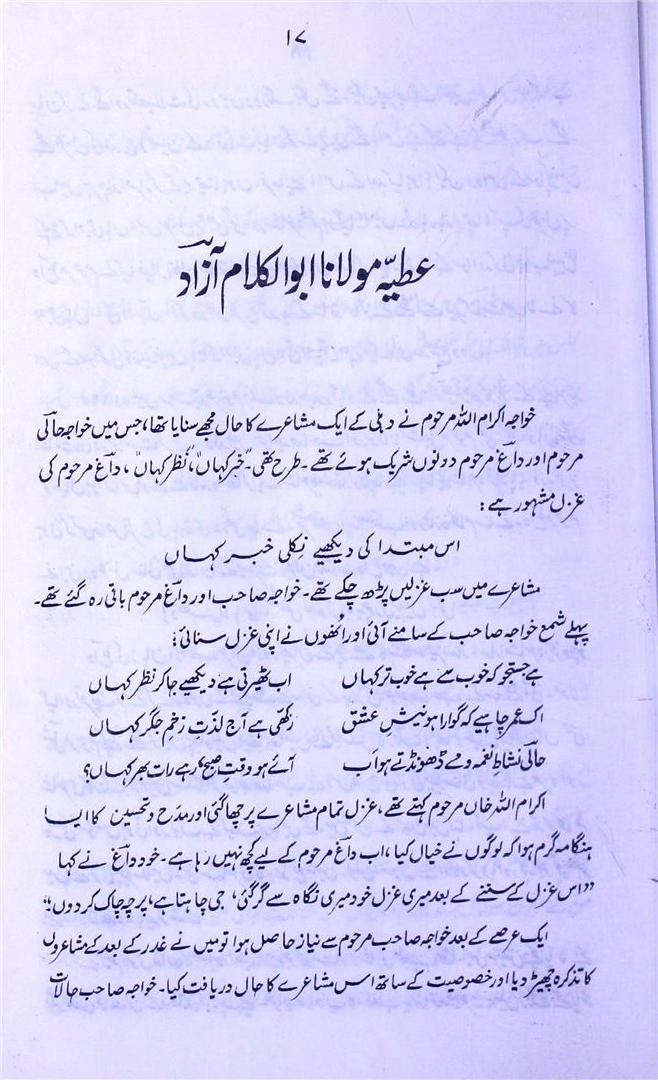 ۱۷
عطیہّ مولانا ابوالکلام آزادؔ
خواجہ اکرام اللہ مرحوم نے دہلی کے ایک مشاعرے کا حال مجھے سنایا تھا، جس میں خواجہ حالؔی
مرحوم اور داغؔ مرحوم دونوں شریک ہوئے تھے۔ طرح تھی۔ "خبر کہاں"، "نظر کہاں"، داغؔ مرحوم کی
غزل مشہور ہے:
اس مبتدا کی دیکھیے نکلی خبر کہاں
مشاعرے میں سب غزلیں پڑھ چکے تھے۔ خواجہ صاحب اور داغؔ مرحوم باقی رہ گئے تھے۔
پہلے شمع خواجہ صاحب کے سامنے آئی اور اُنھوں نے اپنی غزل سنائی:
ہے جستجو کہ خوب سے ہے خوب تر کہاں اب ٹھیرتی ہے دیکھیے جا کر نظر کہاں
اک عمر چاہیے کہ گوارا ہو نیشِ عشق رکھی ہے آج لذتِ زخمِ جگر کہاں
حالؔی نشاطِ نغمہ و مے ڈھونڈتے ہو اب آئے ہو وقتِ صبح، رہے رات بھر کہاں؟
اکرام اللہ خاں مرحوم کہتے تھے، غزل تمام مشاعرے پر چھا گئی اور مدح و تحسین کا ایسا
ہنگامہ گرم ہوا کہ لوگوں نے خیال کیا، اب داغؔ مرحوم کے لیے کچھ نہیں رہا ہے۔ خود داغؔ نے کہا
"اس غزل کے سننے کے بعد میری غزل خود میری نگاہ سے گر گئی، جی چاہتا ہے، پرچہ چاک کر دوں"؛
ایک عرصے کے بعد خواجہ صاحب مرحوم سے نیاز حاصل ہوا تو میں نے غدر کے بعد کے مشاعروں
کا تذکرہ چھیڑ دیا اور خصوصیت کے ساتھ اس مشاعرے کا حال دریافت کیا۔ خواجہ صاحب حالات